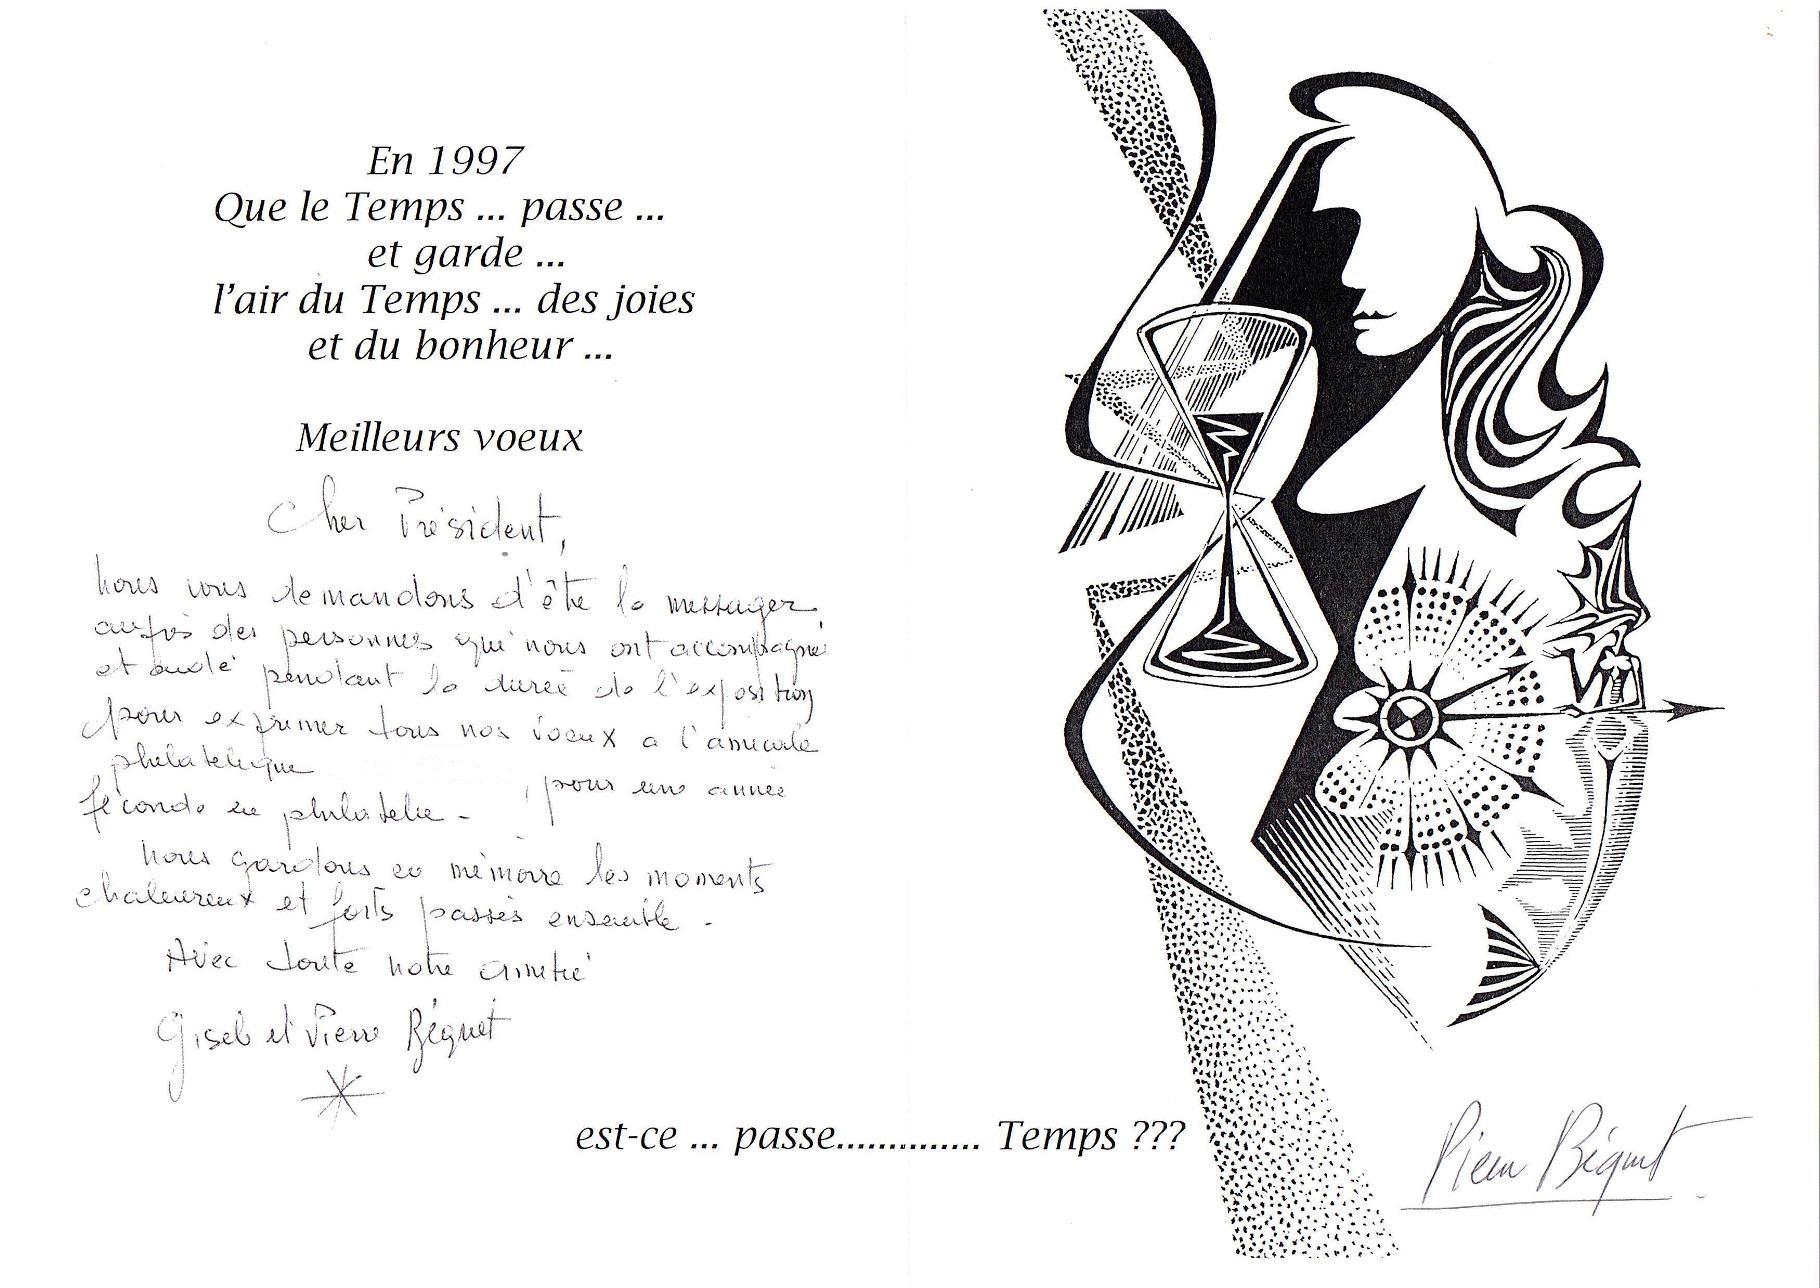 En 1997
Que le Temps ... passe ...
et garde ...
l'air du Temps ... des joies
et du bonheur ...
Meilleurs voeux
Cher Président,
nous vous demandons d'être le messager
auprès des personnes qui nous ont accompagné
et aidé pendant la durée de l'exposition
pour exprimer tous nos voeux a l'amicale
philatelique
, pour une année
féconde en philatelie -
nous gardons en mémoire les moments
chaleureux et forts passés ensemble -
Avec toute notre amitié
Gisele et Pierre Béquet
est-ce ... passe.............. Temps ???
Pierre Béquet